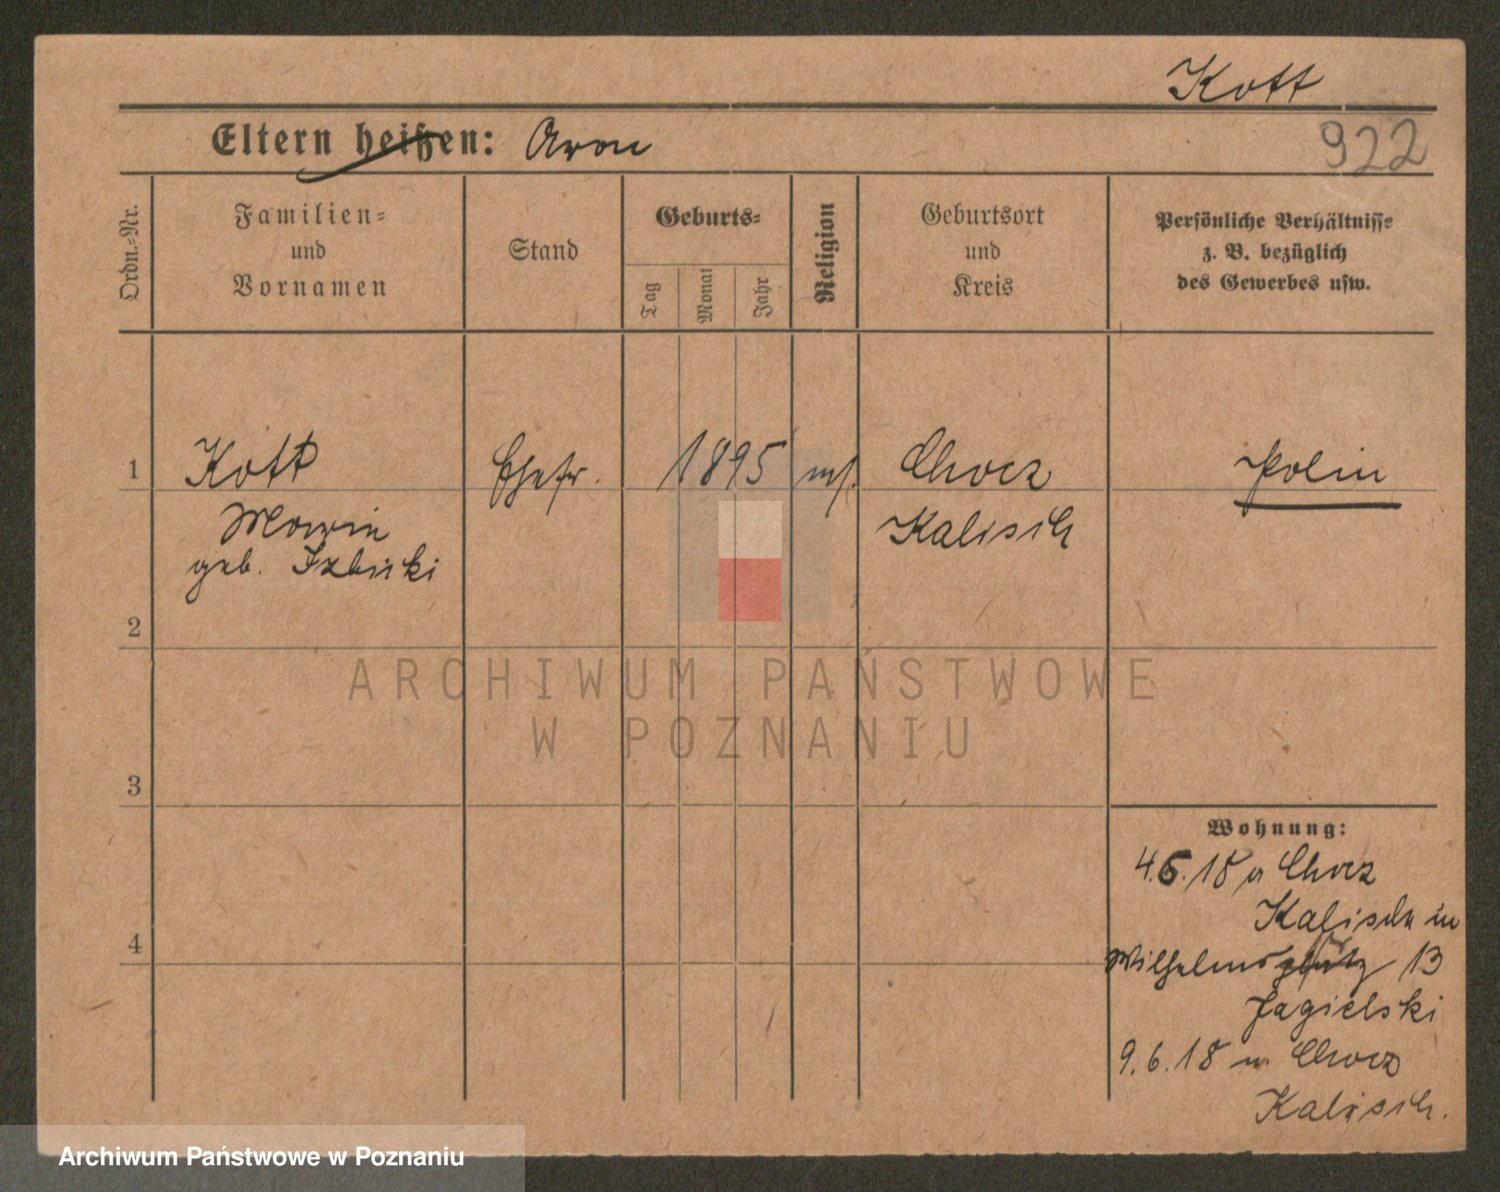 Kott
Eltern heißen: Aron
922
Ordn.-Nr.
Familien-
und
Vornamen
Stand
Geburts-
Tag
Monat
Jahr
Religion
Geburtsort
und
Kreis
Persönliche Verhältnisse
z. B. bezüglich
des Gewerbes usw.
1
Kott
Ehefr.
1895
mos.
Chocz
Polin
Marie
Kalisch
geb. Izbicki
2
ARCHIWUM PAŃSTWOWE
W POZNANIU
3
Wohnung:
4.6.18 v Chocz
Kalisch in
4
Wilhelmsplatz 13
Jagielski
9.6.18 n. Chocz
Kalisch.
Archiwum Państwowe w Poznaniu